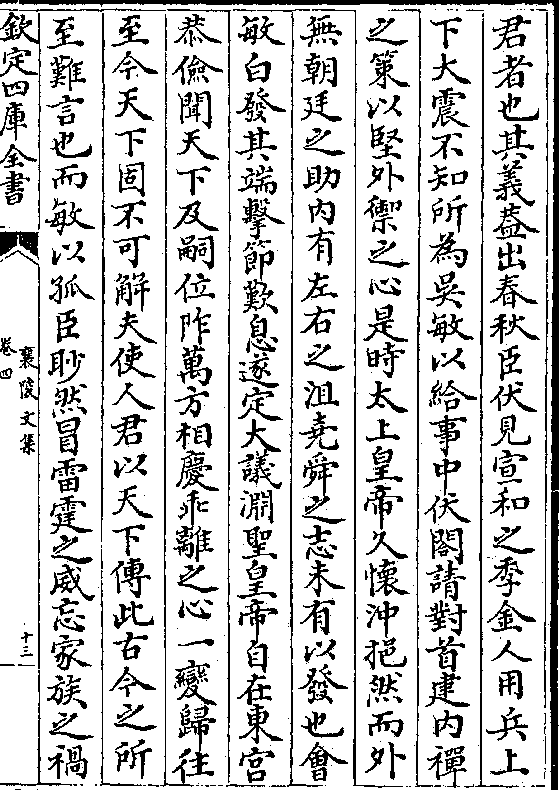 君者也其義葢出春秋臣伏見宣和之季金人用兵上
下大震不知所為吳敏以給事中伏閤請對首建内禪
之策以堅外禦之心是時太上皇帝久懷沖挹然而外
無朝廷之助内有左右之沮堯舜之志未有以發也㑹
敏白發其端擊節歎息遂定大議淵聖皇帝自在東宮
恭儉聞天下及嗣位阼萬方相慶乖離之心一變歸往
至今天下固不可解夫使人君以天下傳此古今之所
至難言也而敏以孤臣眇然冒雷霆之威忘家族之禍
欽定四庫全書
襄陵文集
卷四
十三